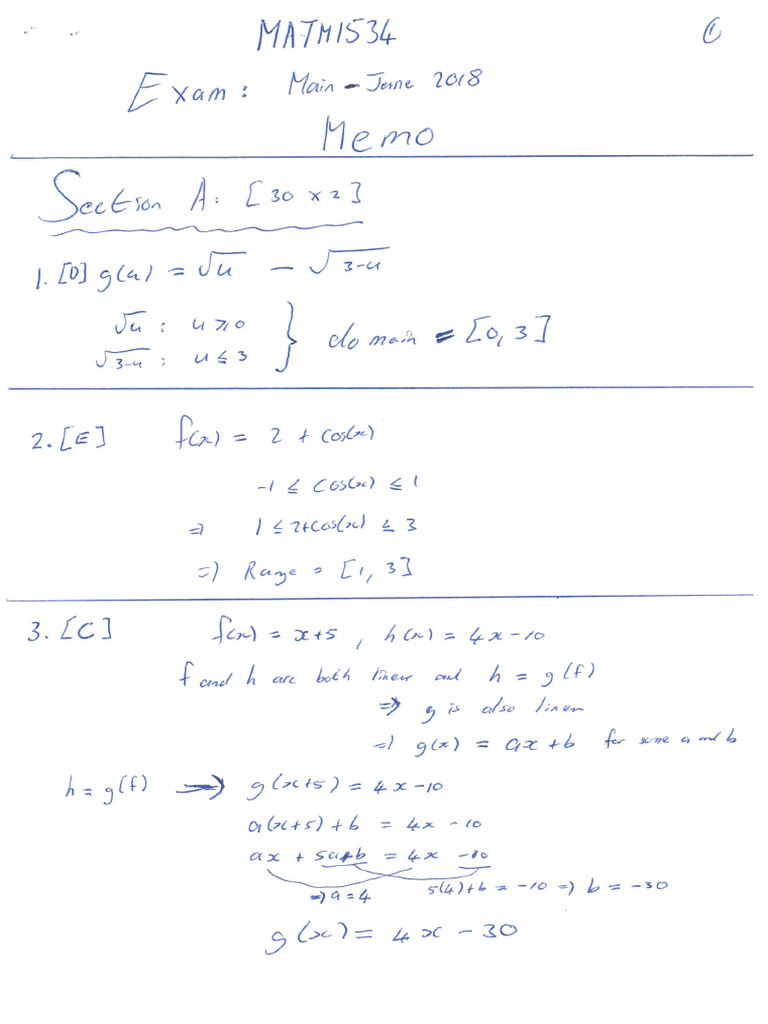 MATM1534
①
Exam: Main - June 2018
Memo
Section A: [30 x 2]
1. [D] g(u) = √u - √(3-u)
√u : u ≥ 0
√(3-u) : u ≤ 3
} domain = [0, 3]
2. [E] f(x) = 2 + cos(x)
-1 ≤ cos(x) ≤ 1
⇒ 1 ≤ 2+cos(x) ≤ 3
⇒ Range = [1, 3]
3. [C] f(x) = x+5 , h(x) = 4x-10
f and h are both linear and h = g(f)
⇒ g is also linear
⇒ g(x) = ax+b for some a and b
h = g(f) → g(x+5) = 4x-10
a(x+5) + b = 4x - 10
ax + 5a+b = 4x - 10
⇒ a = 4 5(4)+b = -10 ⇒ b = -30
g(x) = 4x - 30